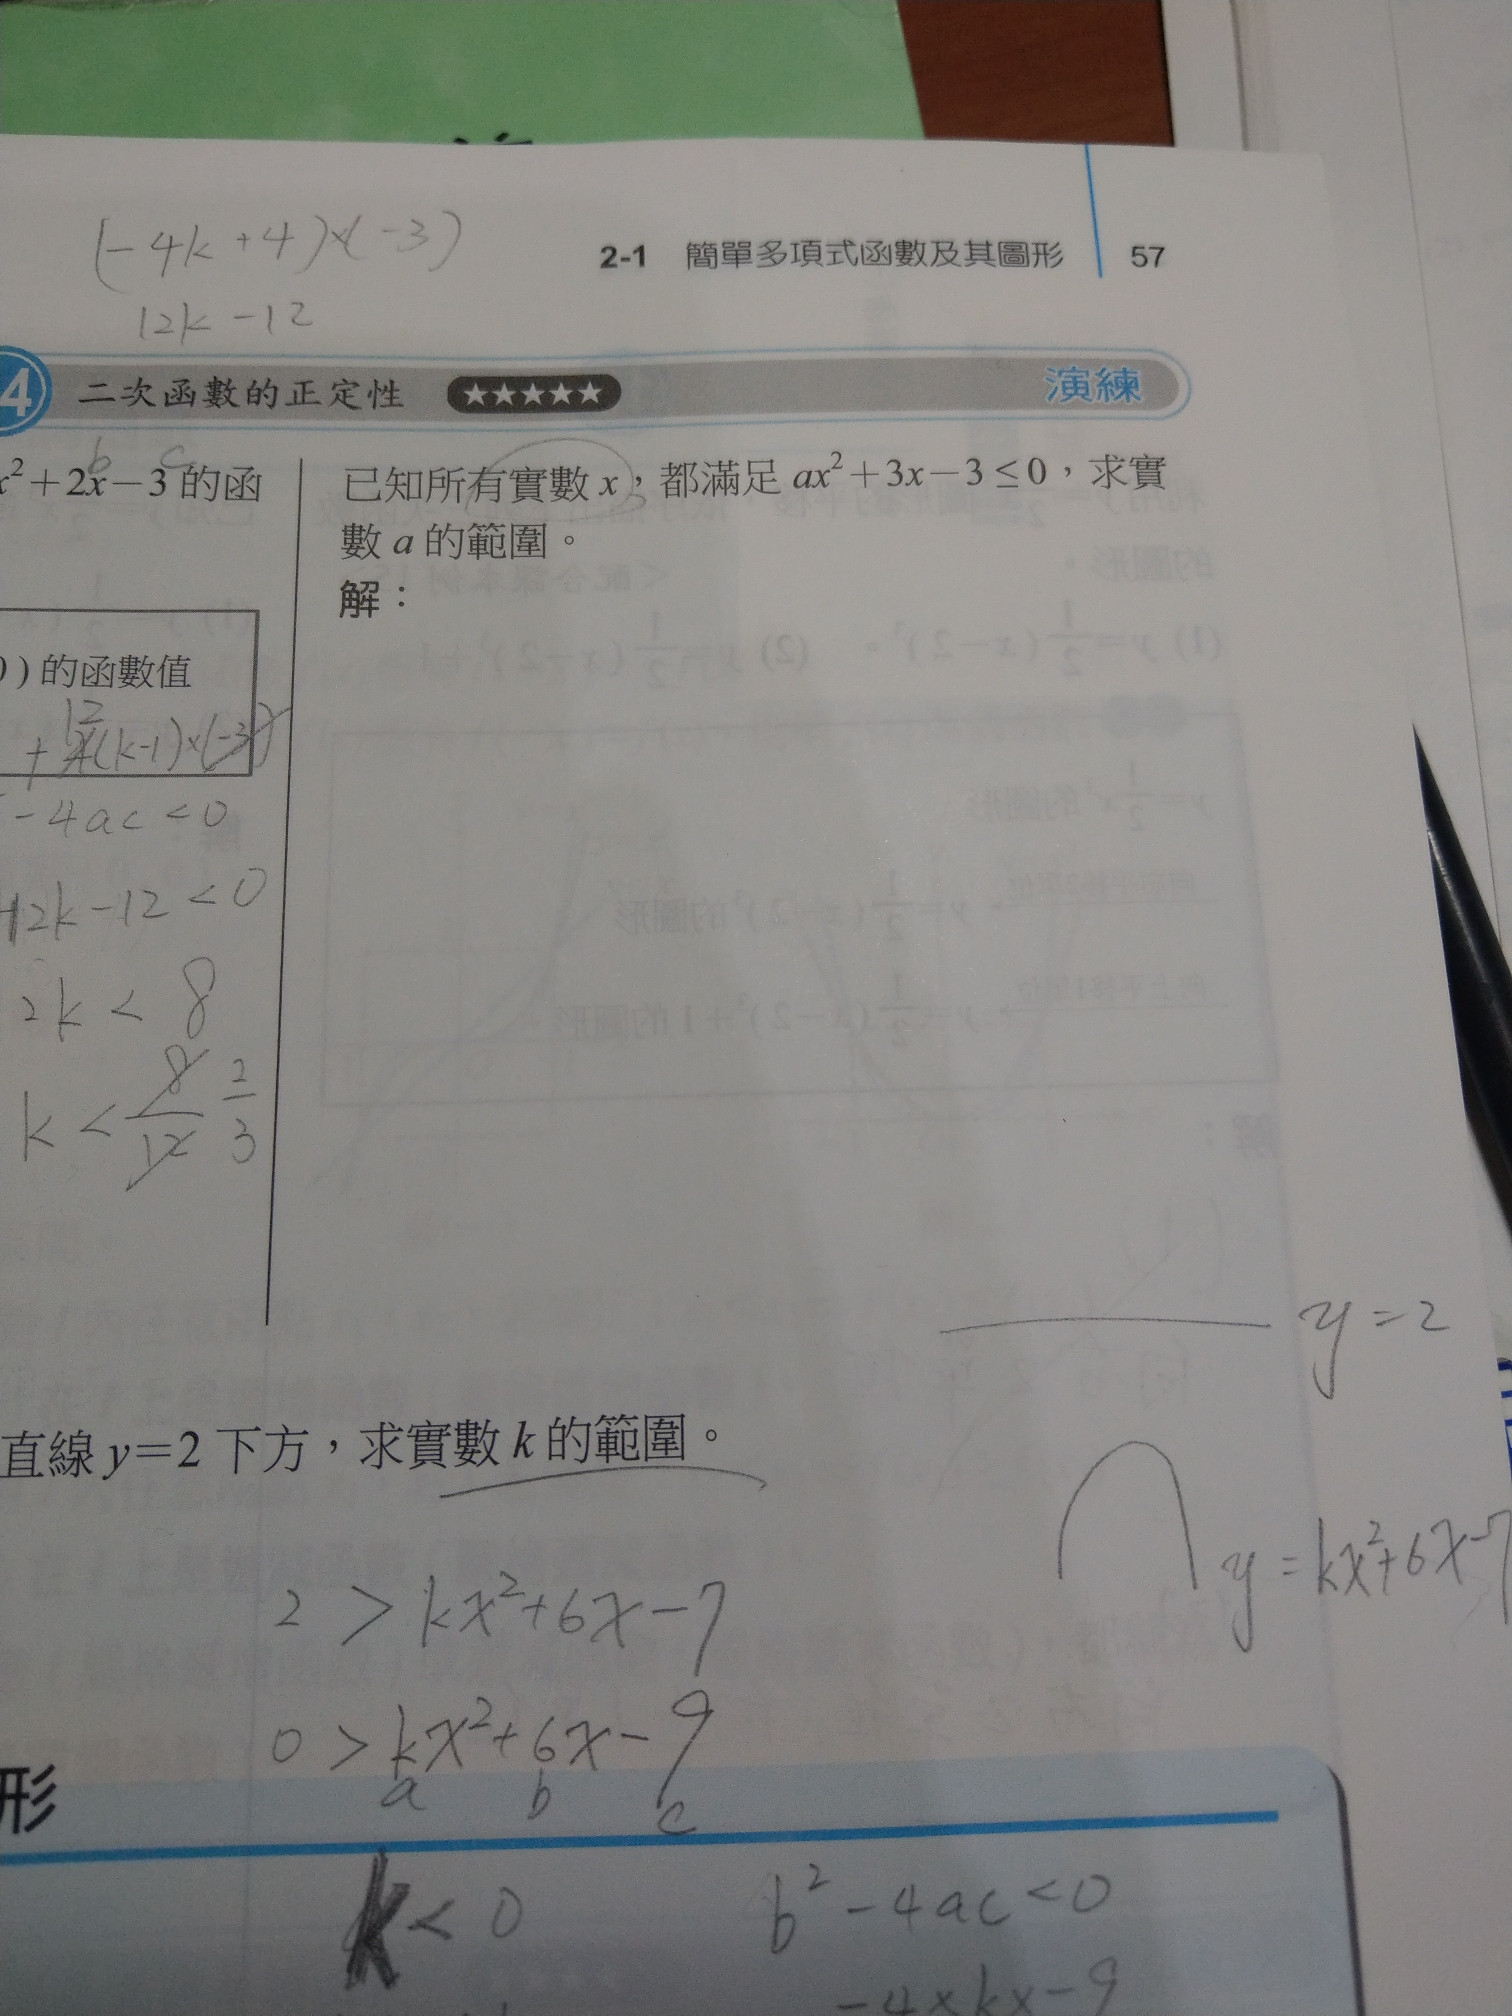 (-4k+4)×(-3)
12k-12
2-1 簡單多項式函數及其圖形 57
4 二次函數的正定性 ★★★★★ 演練
b c
x²+2x-3 的函
)的函數值
12
+4(k-1)×(-3)
-4ac<0
12k-12<0
2k<8
k<8/12 2/3
已知所有實數 x,都滿足 ax²+3x-3≤0,求實
數 a 的範圍。
解:
y=2
直線 y=2 下方,求實數 k 的範圍。
y=kx²+6x-7
2>kx²+6x-7
0>kx²+6x-9
a b c
形
k<0 b²-4ac<0
-4×k×-9